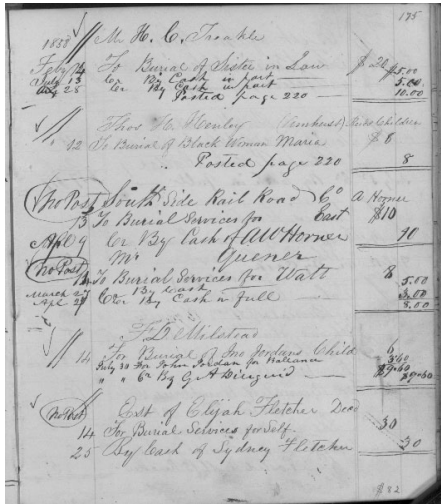 175
1858 Mr H. C. Trankle
Feby 14 To Burial of Sister in Law $20
July 13 Cr By Cash in part $5.00
Aug 28 Cr By Cash in part 5.00
Posted page 220 10.00
Thos H. Henley (Amherst) Children
12 To Burial of Black Woman Maria $8
Posted page 220 8
No Post South Side Rail Road Co A Horner
13 To Burial Services for East $10
Apl 9 Cr By Cash of AW Horner 10
No Post Mr Guener
14 To Burial Services for Watt 8
March 27 By Cash 5.00
Apl 29 Cr By Cash in full 3.00
8.00
F D Milstead
14 For Burial of Jno Jordans Child 6
July 30 For John Jordan for Balance 3.40
" " Cr By G A Diuguid $9.40 $9.40
No Post Est of Elijah Fletcher Decd
14 For Burial Services for Self 30
25 By Cash of Sydney Fletcher 30
$82